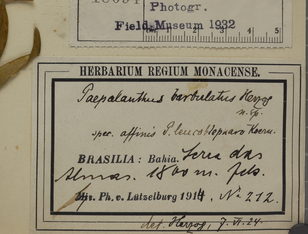 Photogr.
Field Museum 1932
HERBARIUM REGIUM MONACENSE.
Paepalanthus barbulatus Herzog
n. sp.
spec. affinis P. leucoblepharo Koern.
BRASILIA: Bahia. Serra das
Almas. 1800 m.
Ph. v. Lützelburg 1914, No 212.
det. Herzog, 7. VI. 24.